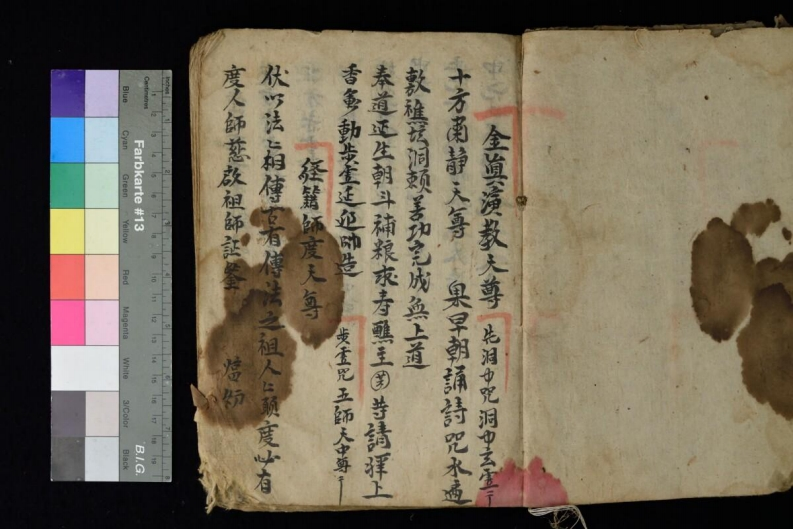 金眞演教天尊 先洞中咒洞中玄虛
十方肅靜天尊 果早朝誦詩咒水遍
敷醮壇洞賴善功完成無上道
奉道延生朝斗補粮求寿醮主等請擇上
香動步虛延迎師造 步虛咒 五師天中尊
経籍師度天尊
伏以法〻相傳古有傳法之祖人〻願度必有
度人師慈啟祖師証鑒
Farbkarte #13
B.I.G.
Centimetres
Inches
Blue
Cyan
Green
Yellow
Red
Magenta
White
3/Color
Black